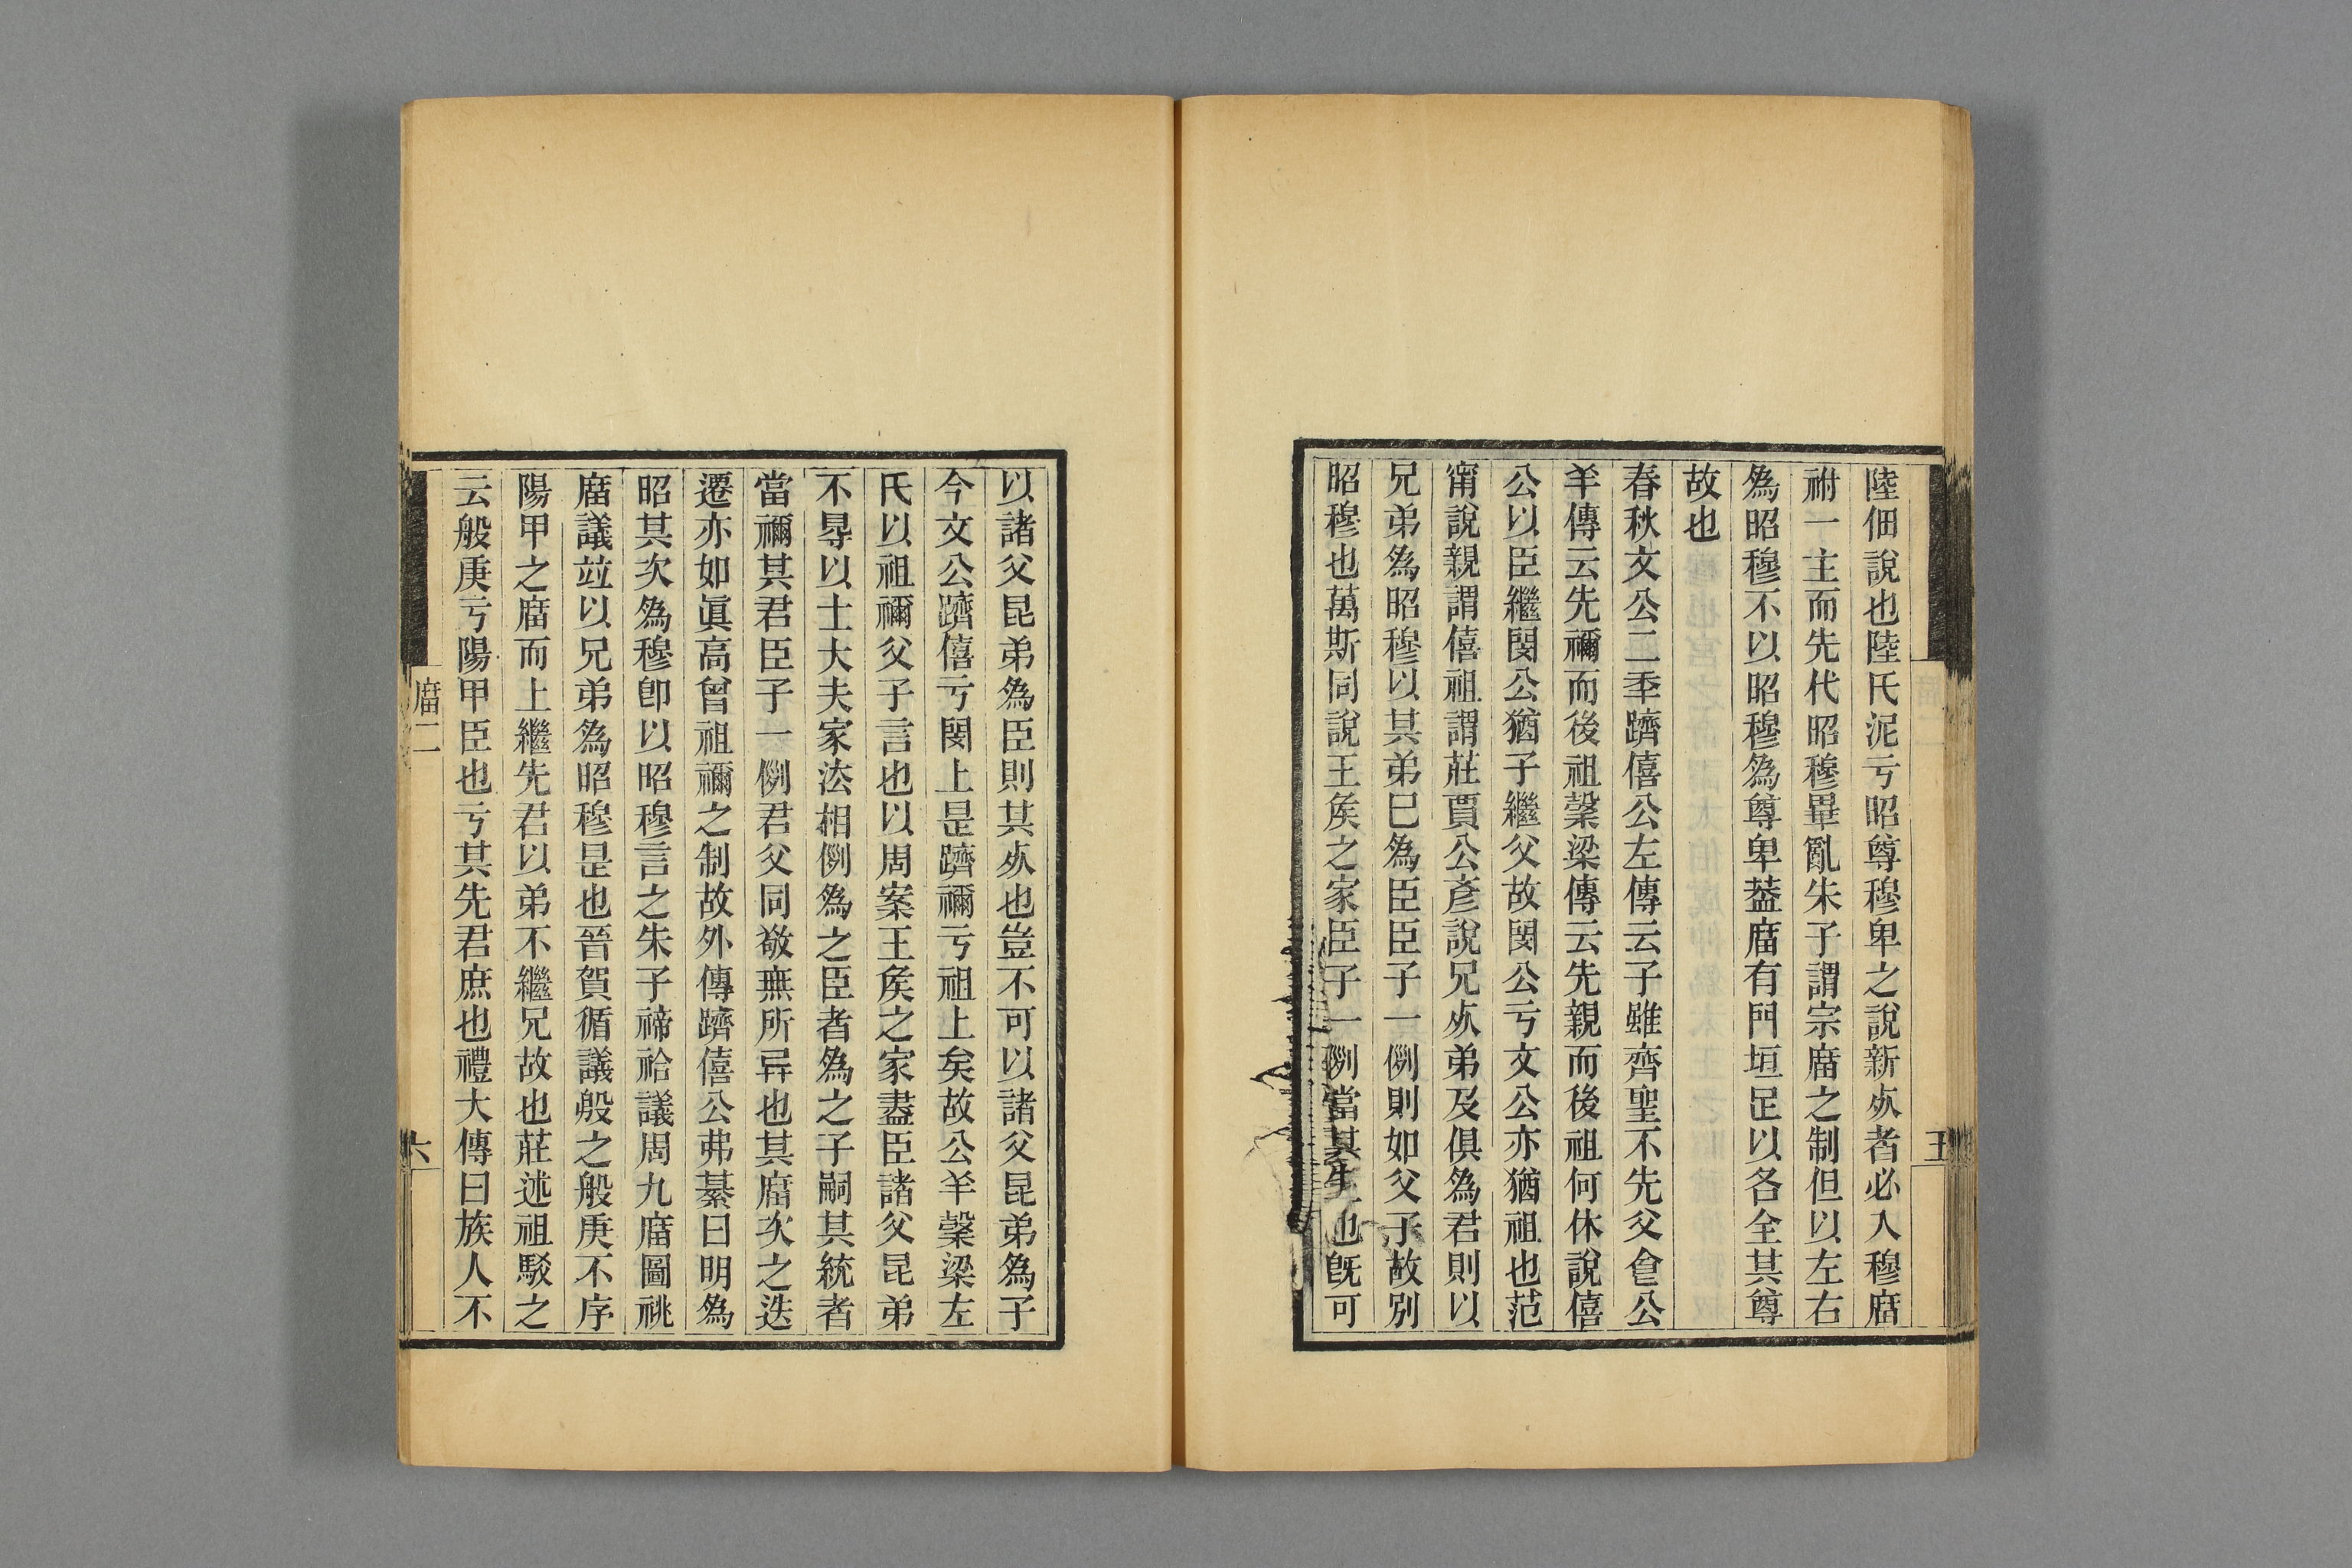 陸佃說也陸氏泥亐昭尊穆卑之說新𣦸者必入穆庿
祔一主而先代昭穆畢亂朱子謂宗庿之制但以左右
為昭穆不以昭穆為尊卑葢庿有門垣足以各全其尊
故也
春秋文公二秊躋僖公左傳云子雖齊聖不先父𠊊公
羊傳云先禰而後祖榖梁傳云先親而後祖何休說僖
公以臣繼閔公猶子繼父故閔公亐文公亦猶祖也范
甯說親謂僖祖謂莊賈公彥說兄𣦸弟及俱為君則以
兄弟為昭穆以其弟巳為臣臣子一例則如父子故別
昭穆也萬斯同說王矦之家臣子一例當其生也旣可
以諸父昆弟為臣則其𣦸也豈不可以諸父昆弟為子
今文公躋僖亐閔上是躋禰亐祖上矣故公羊榖梁左
氏以祖禰父子言也以周案王矦之家盡臣諸父昆弟
不㝵以士大夫家法相例為之臣者為之子嗣其統者
當禰其君臣子一例君父同敬無所异也其庿次之迭
遷亦如眞高曾祖禰之制故外傳躋僖公弗綦曰明為
昭其次為穆卽以昭穆言之朱子禘祫議周九庿圖祧
庿議竝以兄弟為昭穆是也晉賀循議殷之般庚不序
陽甲之庿而上繼先君以弟不繼兄故也莊述祖駁之
云般庚亐陽甲臣也亐其先君庶也禮大傳曰族人不
庿二
六
五